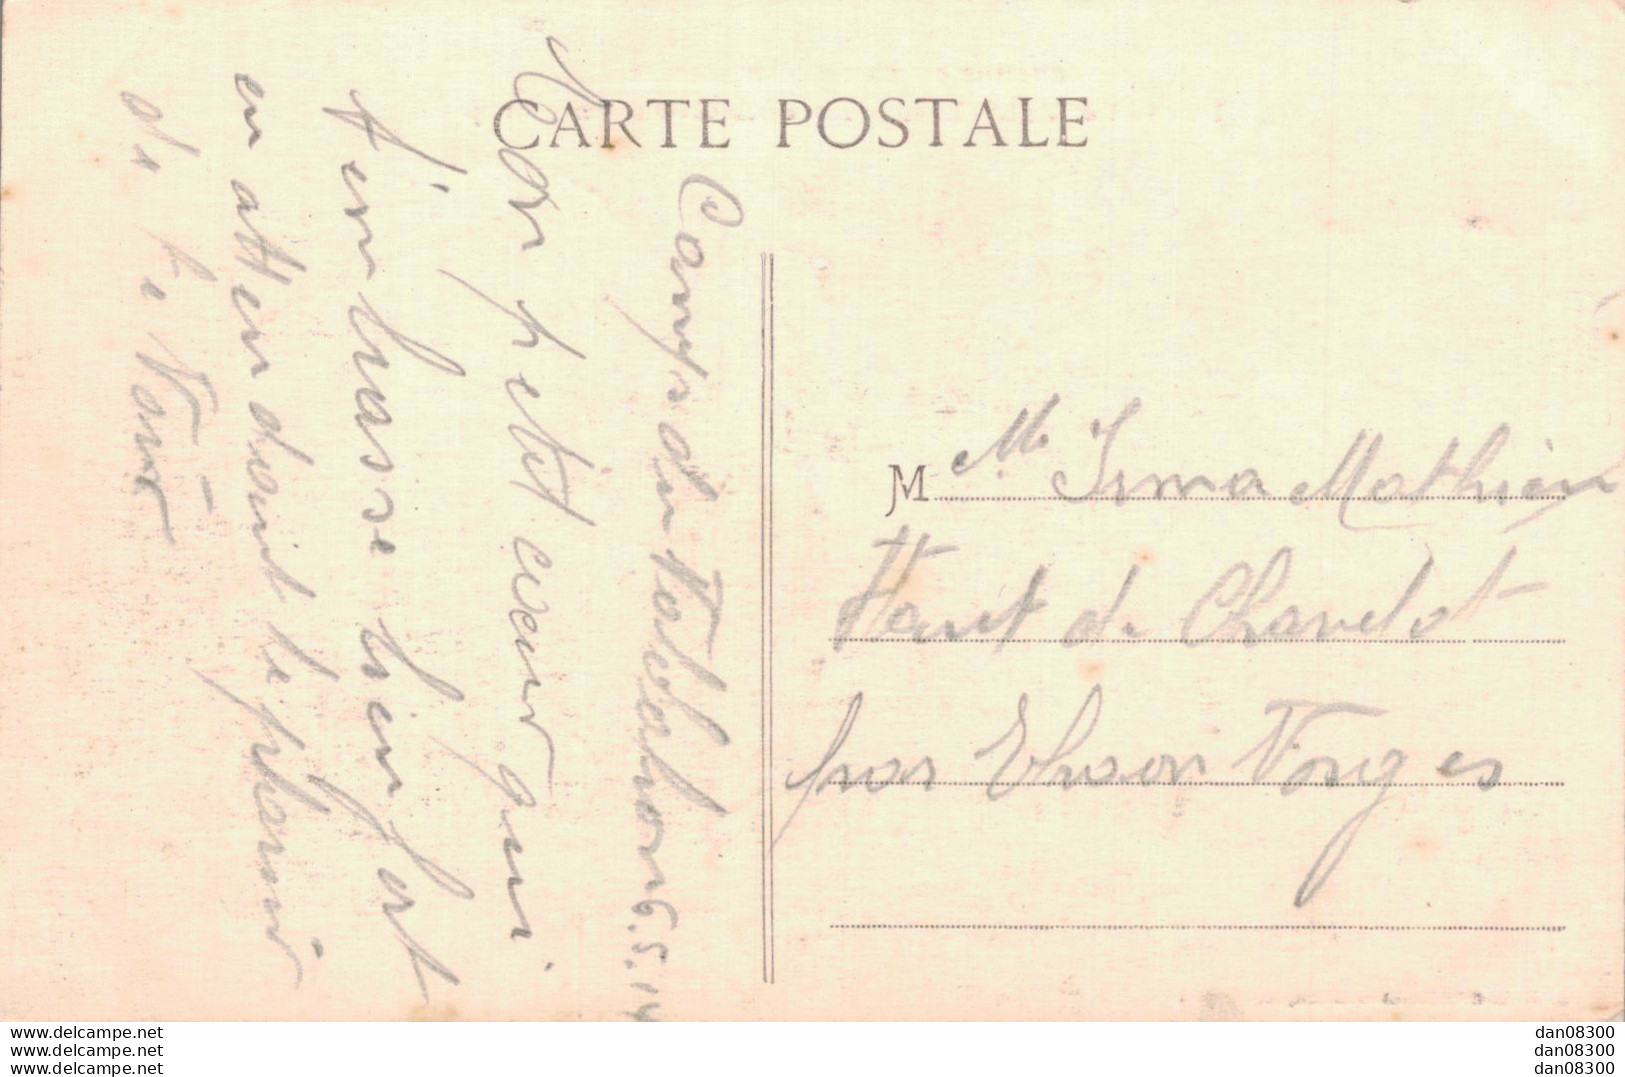 CARTE POSTALE
Camp du Valdahon 6.5.14
Mon petit cœur qui
t'embrasse bien fort
en attendant le plaisir
de te voir
M lle Irma Mathieu
Haut de Chavelot
par Thaon Vosges
www.delcampe.net
www.delcampe.net
www.delcampe.net
dan08300
dan08300
dan08300